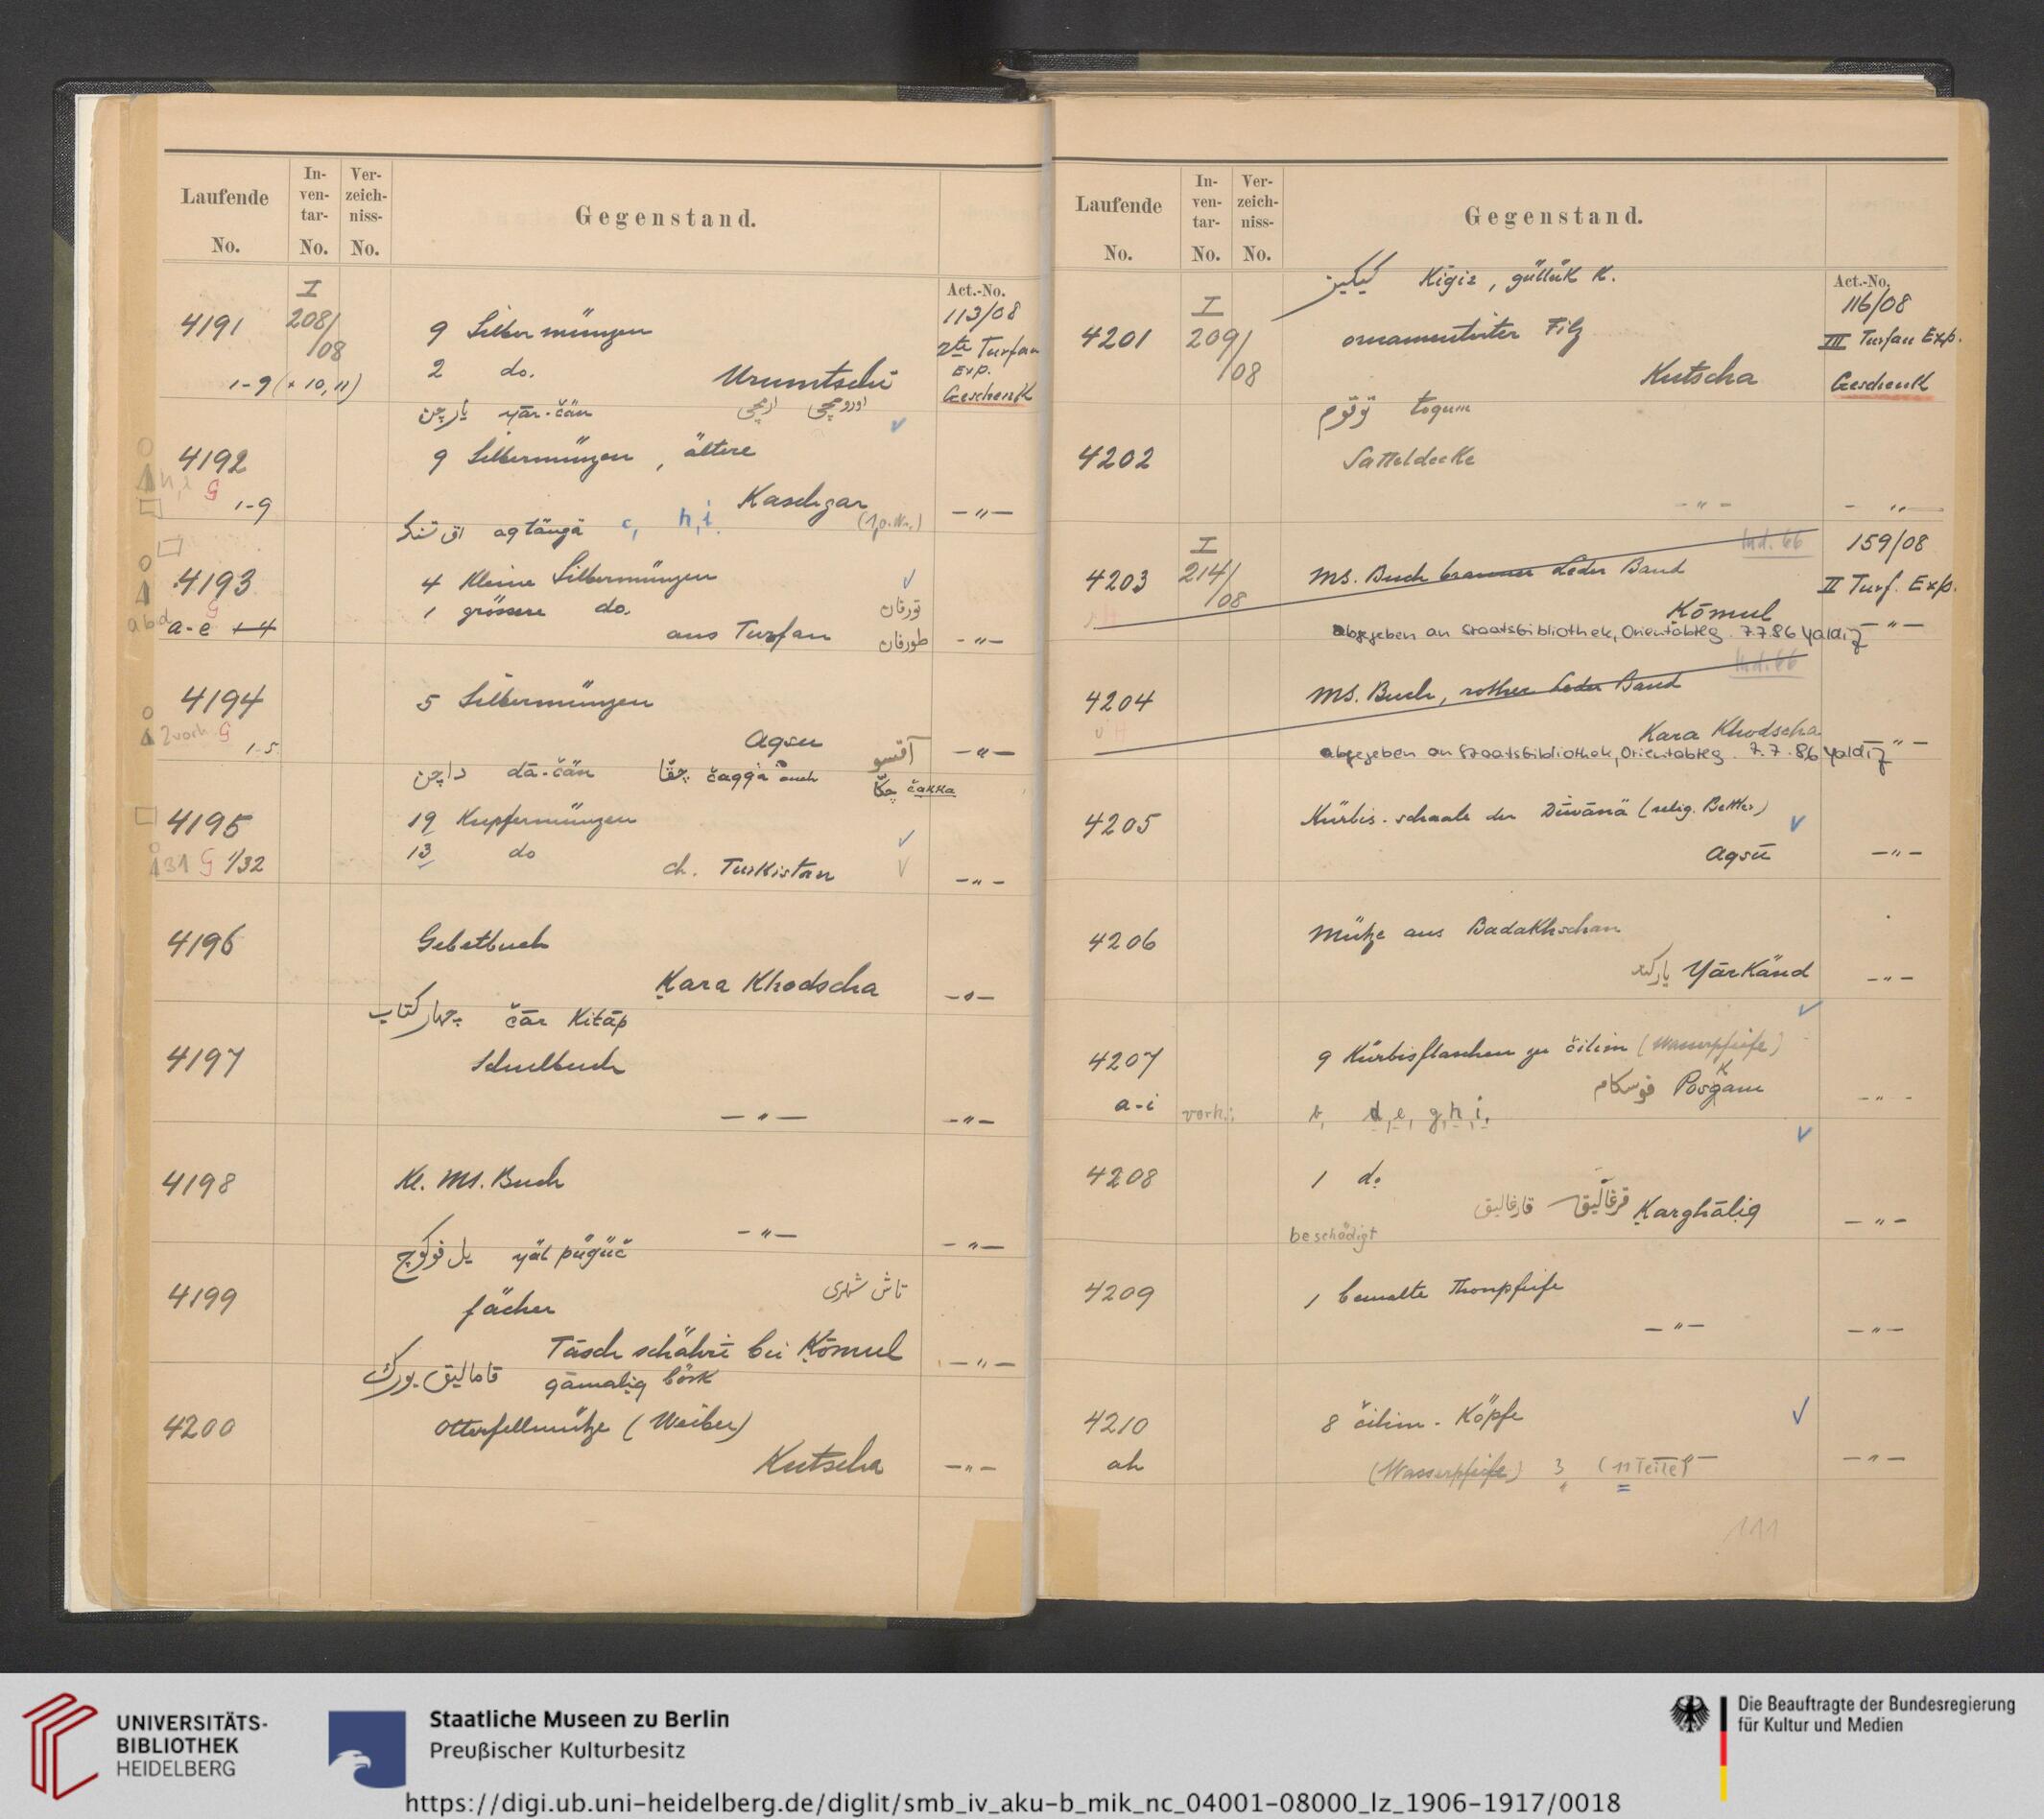 Laufende No.
In-ven-tar- No.
Ver-zeich-niss- No.
Gegenstand.
Act.-No.
I
208/08
113/08
2te Turfan Exp.
Geschenk
4191
9 Silbermünzen
1-9 (+ 10, 11)
2 do.
Urumtschi
يارچن yār-čän
اورومچی
4192
9 Silbermünzen, ältere
1-9
Kaschgar
—"—
اق تنگه aqtängä
c, h, i.
4193
4 kleine Silbermünzen
1 grössere do.
a-e
aus Turfan
تورفان
طورفان
—"—
4194
5 Silbermünzen
2 vorh. G
1-5
Aqsu
آقسو
—"—
داچن dā-čän
چقّا čaqqa auch
چكّا čakka
4195
19 Kupfermünzen
13 do
31 G 1/32
ch. Turkistan
—"—
4196
Gebetbuch
Kara Khodscha
—"—
چهار كتاب čār Kitāp
4197
Schulbuch
—"—
—"—
4198
Kl. Ms. Buch
—"—
—"—
يل فوكوچ yäl pügüč
4199
fächer
تاش شهری
Tāsch schährī bei Kōmul
—"—
قاماليق بورك qāmaliq börk
4200
Otterfellmütze (Weiber)
Kutscha
—"—
Laufende No.
In-ven-tar- No.
Ver-zeich-niss- No.
Gegenstand.
Act.-No.
كيكيز Kigiz, güllük K.
I
209/08
116/08
III Turfan Exp.
Geschenk
4201
ornamentirter Filz
Kutscha
توقوم toqum
4202
Satteldecke
—"—
—"—
I
214/08
Ind. 66
159/08
II Turf. Exp.
4203
Ms. Buch brauner Leder Band
Kōmul
abgegeben an Staatsbibliothek, Orientabtlg. 7.7.86 Yaldiz
—"—
Ind. 66
4204
Ms. Buch, rother Leder Band
Kara Khodscha
abgegeben an Staatsbibliothek, Orientabtlg. 7.7.86 Yaldiz
—"—
4205
Kürbis-schaale der Dīwānä (relig. Bettler)
Aqsū
—"—
4206
Mütze aus Badakhschan
ياركند Yārkänd
—"—
4207
9 Kürbisflaschen zu čilim (Wasserpfeife)
فوسكام Posgam
k
a-i
vorh.:
b, d, e, g, h, i.
—"—
4208
1 do
قارغاليق قرغاليق Karghāliq
beschädigt
—"—
4209
1 bemalte Thonpfeife
—"—
—"—
4210
8 čilim-Köpfe
ah
(Wasserpfeife) 3 (11 Teile)
—"—
—"—
111
UNIVERSITÄTS-
BIBLIOTHEK
HEIDELBERG
Staatliche Museen zu Berlin
Preußischer Kulturbesitz
Die Beauftragte der Bundesregierung
für Kultur und Medien
https://digi.ub.uni-heidelberg.de/diglit/smb_iv_aku-b_mik_nc_04001-08000_lz_1906-1917/0018